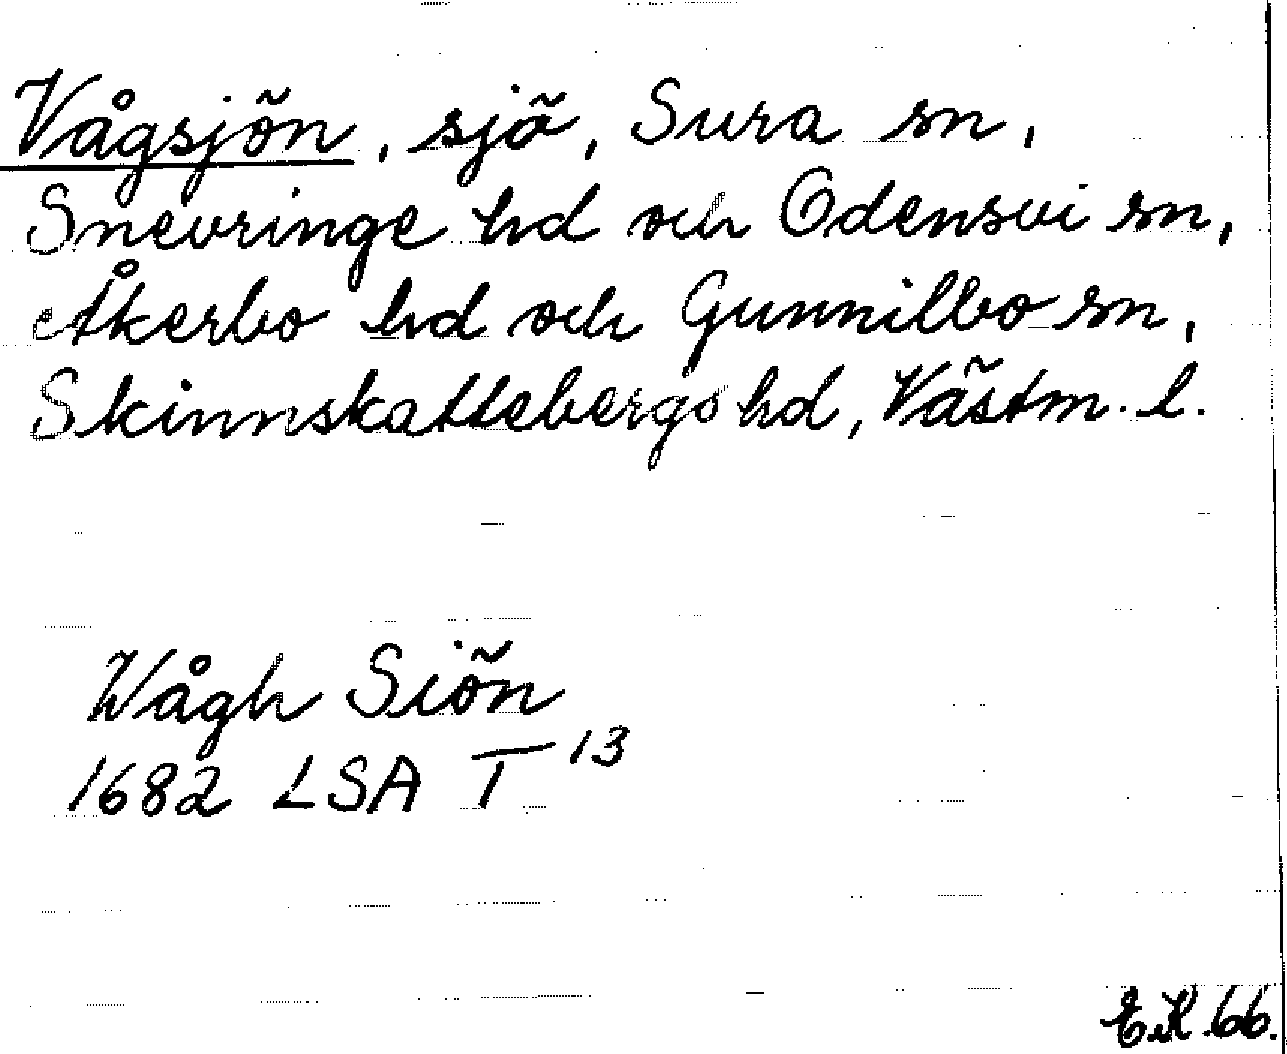 Vågsjön, sjö, Sura sn,
Snevringe hd och Odensvi sn,
Åkerbo hd och Gunnilbo sn,
Skinnskattebergs hd, Västm. l.
Wågh Siön
1682 LSA T 13
E.K. 66.